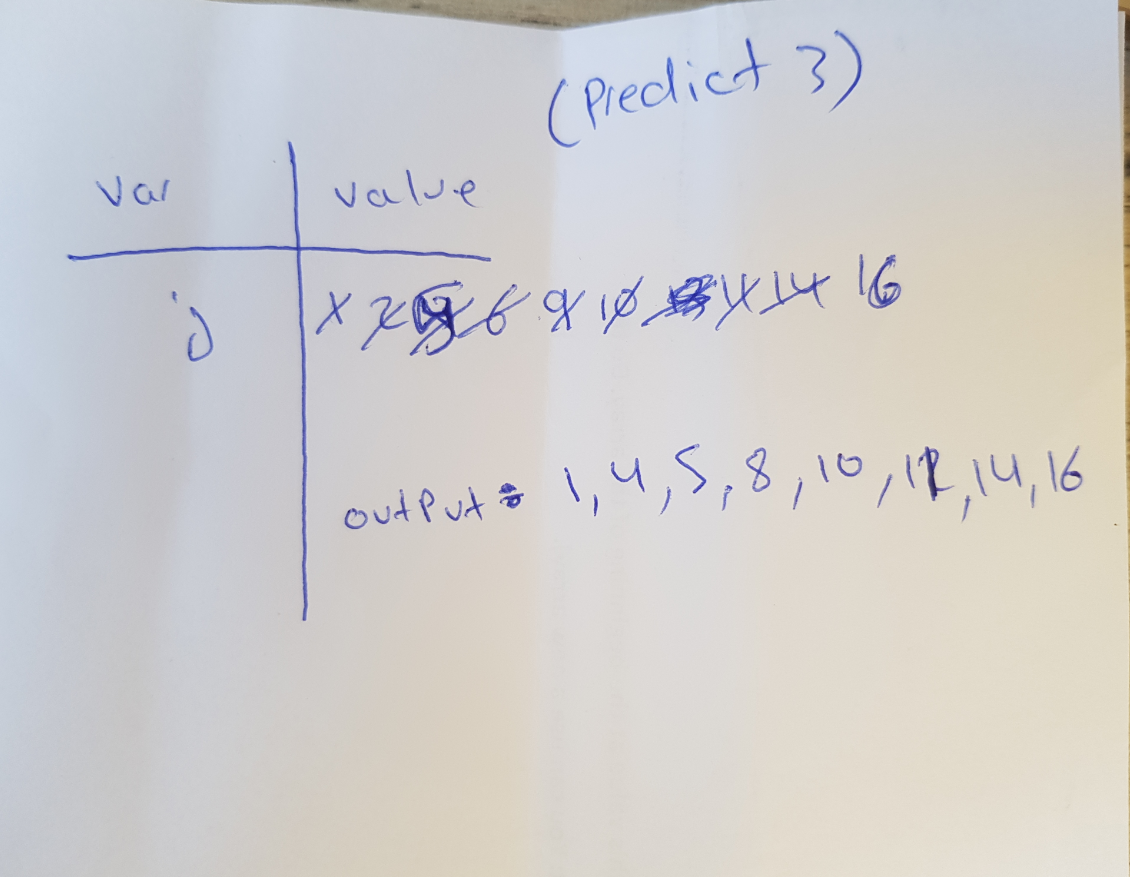 (Predict 3)
var value
j 1 2 6 9 10 11 14 16
output: 1, 4, 5, 8, 10, 12, 14, 16